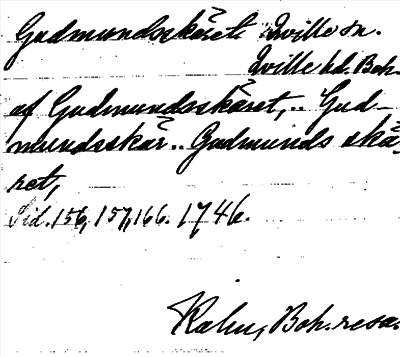 Gudmundsskäret Qville sn.
Qville hd. Boh.
af Gudmundsskäret,.. Gud-
mundsskär.. Gudmunds skä-
ret,
Sid. 156, 157, 166. 1746.
Kalm, Boh. resa.